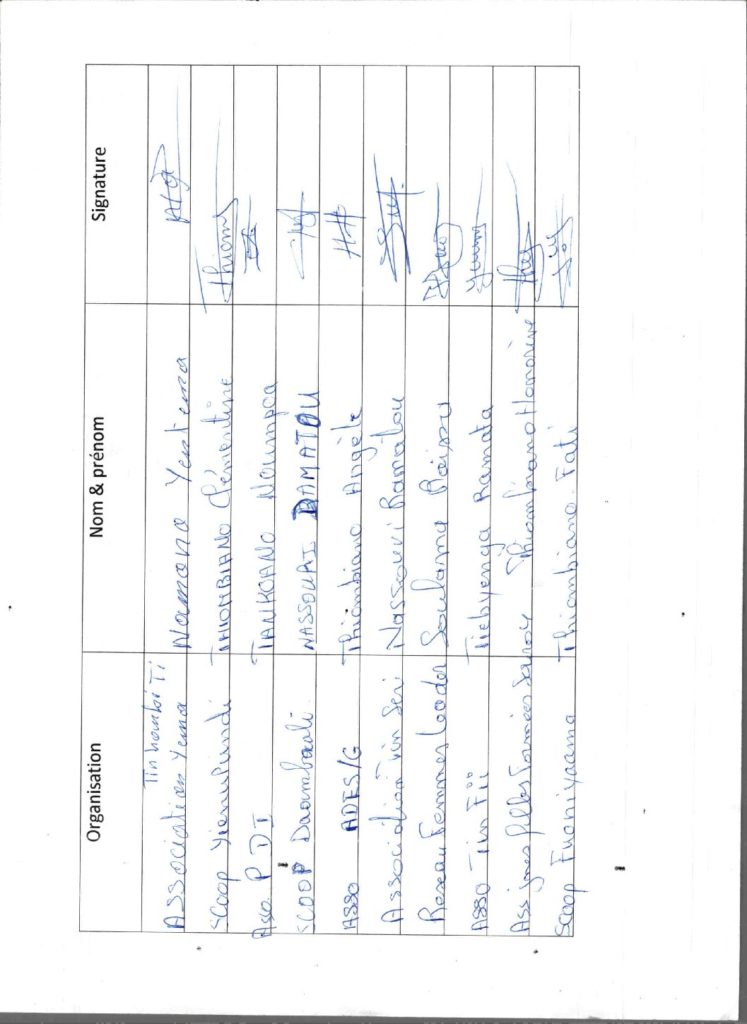 Organisation Nom & prénom Signature
Tin hanbi Ti
Association Yema Namono Yentema
SCOOP THIOMBIANO Clémentine Thiomb
Asso. P DI TANKOANO Noumpoa
SCOOP Daambadi NASSOURI DAMATOU
ASSO ADES/G Thiombiano Angèle
Association Tin Seri Nassouri Ramatou
Reseau Femmes Leader Soulama
ASSO Tin Fii Tiebyenga Ramata
Ass jeunes filles Thiombiano Honorine
SCOOP Fuoniyaama Thiombiano Fati